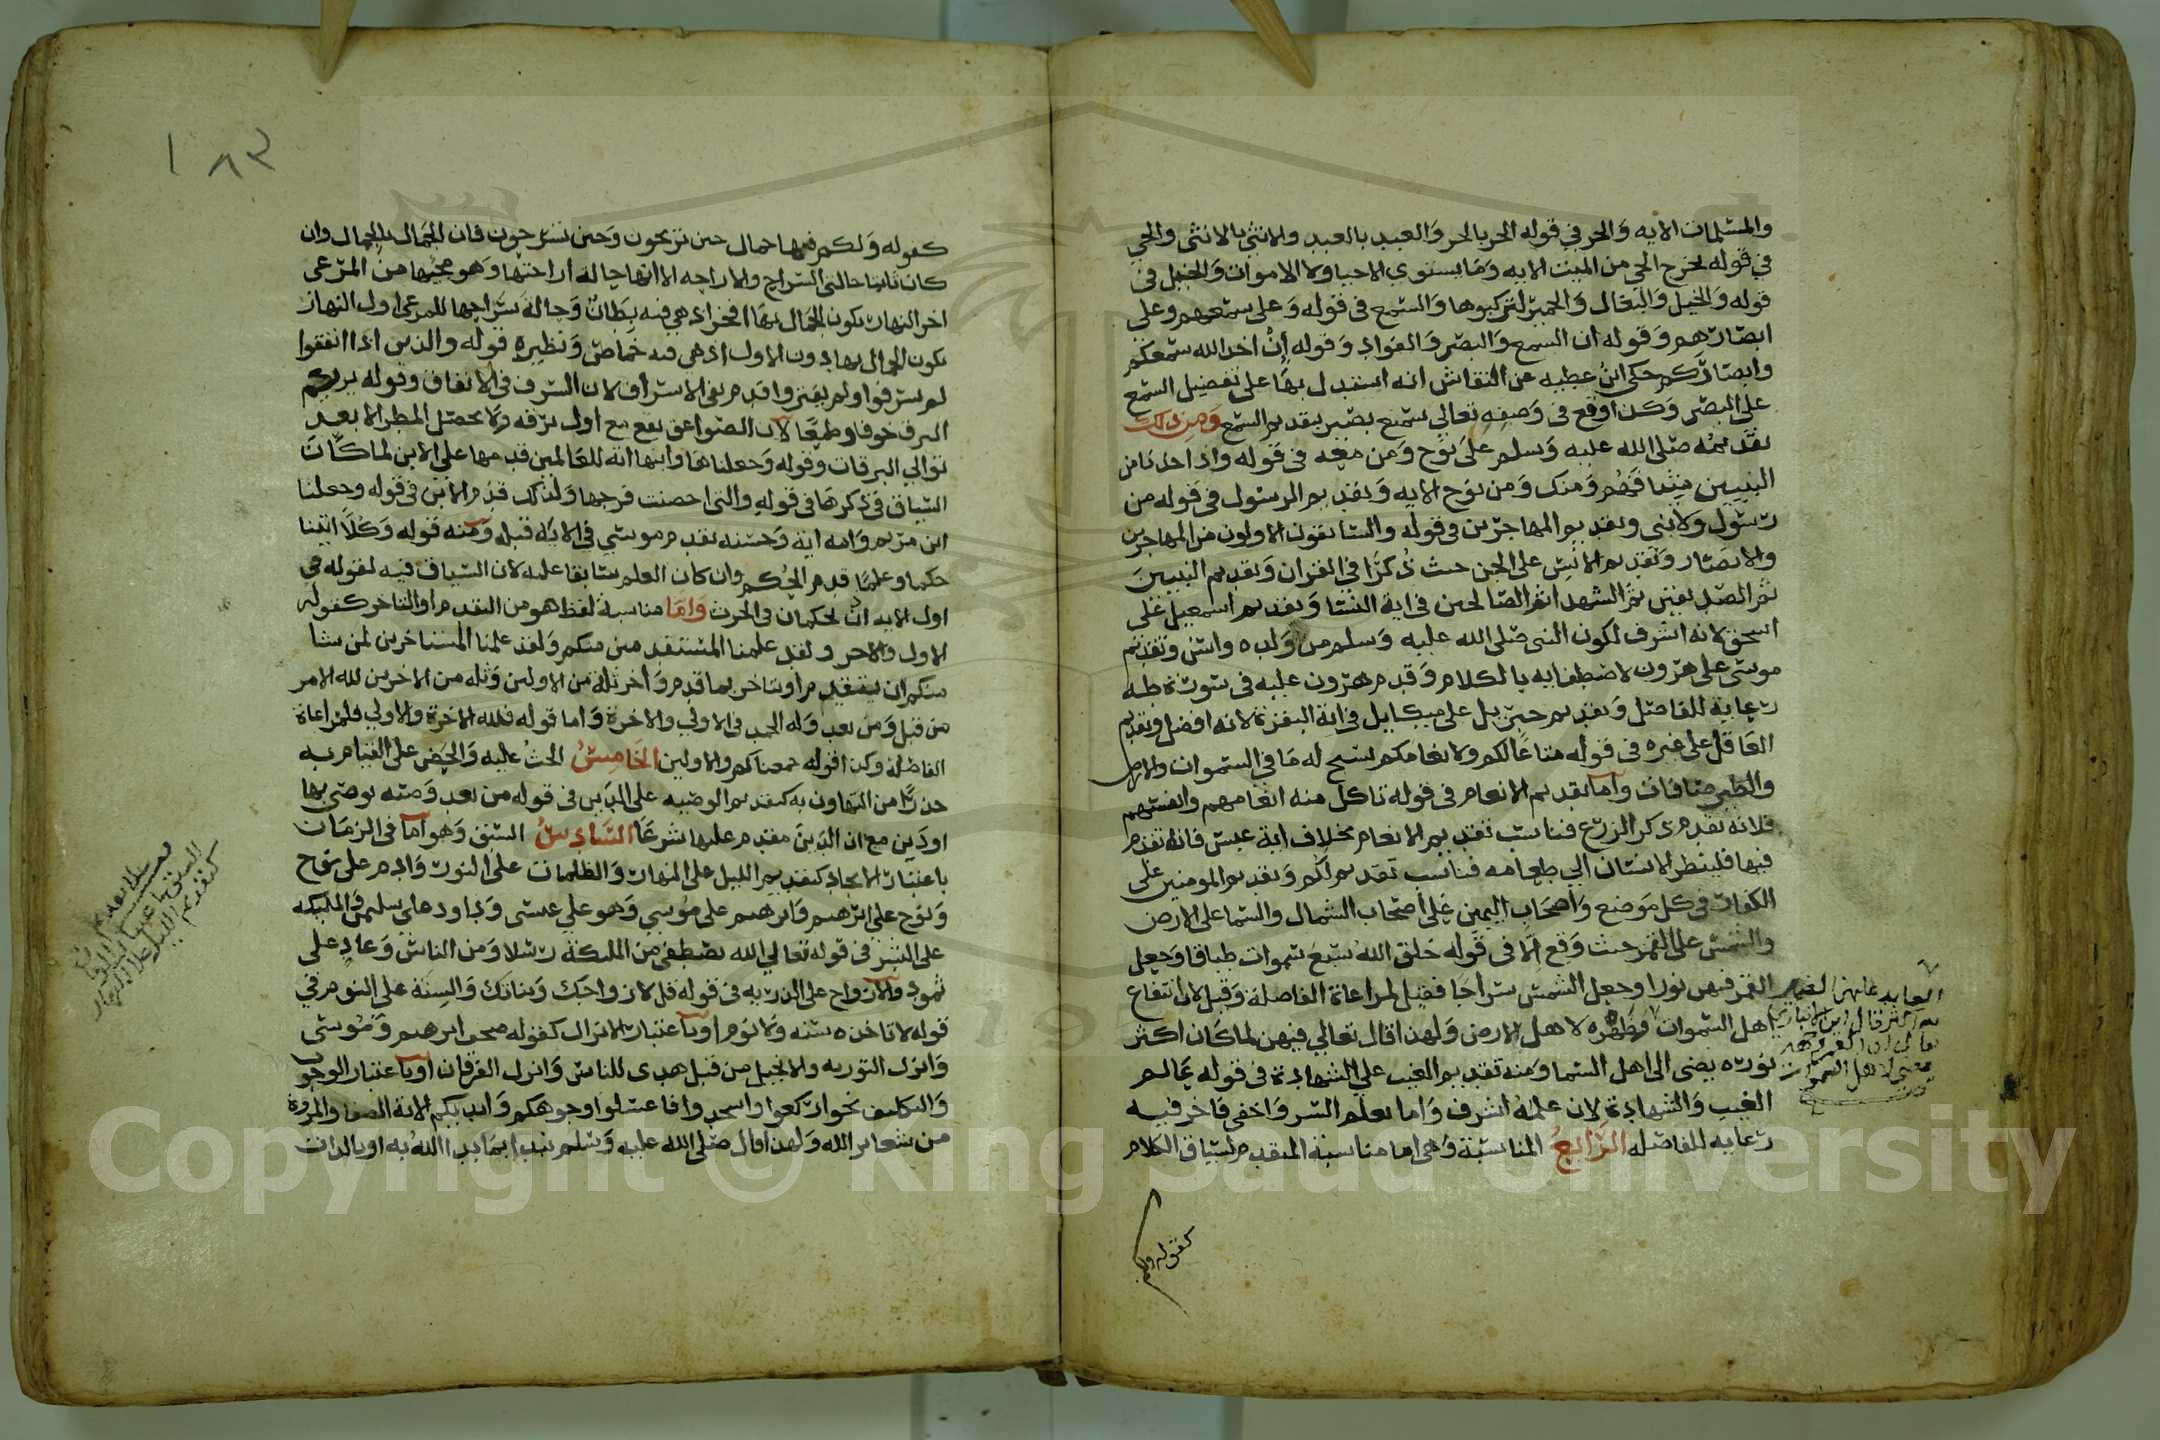 والمسلمات الايه والحر في قوله الحر بالحر والعبد بالعبد والانثى بالانثى والحي
في قوله يخرج الحي من الميت الايه وما يستوي الاحيا ولا الاموات والخيل في
قوله والخيل والبغال والحمير لتركبوها والسمع في قوله وعلى سمعهم وعلى
ابصارهم وقوله ان السمع والبصر والفواد وقوله إن اخذ الله سمعكم
وابصاركم حكى ابن عطيه عن النقاش انه استدل بها على تفضيل السمع
على البصر وكذا وقع في وصفه تعالى سميع بصير بتقديم السمع ومن ذلك
تقديمه صلى الله عليه وسلم على نوح ومن معه في قوله واذ اخذنا من
النبيين ميثاقهم ومنك ومن نوح الايه وتقديم الرسول في قوله من
رسول ولا نبي وتقديم المهاجرين في قوله والسابقون الاولون من المهاجرين
والانصار وتقديم الانس على الجن حيث ذُكرا في القران وتقديم النبيين
ثم الصديقين ثم الشهدا ثم الصالحين في اية النسا وتقديم اسمعيل على
اسحق لانه اشرف لكون النبي صلى الله عليه وسلم من ولده واسن وتقديم
موسى على هرون لاصطفايه بالكلام وقدم هرون عليه في سورة طه
رعاية للفاصل وتقديم جبريل على ميكايل في اية البقرة لانه افضل وتقديم
العاقل على غيره في قوله متاعًا لكم ولانعامكم يسبح له ما في السموات والارض
والطير صافات واما تقديم الانعام في قوله تاكل منه انعامهم وانفسهم
فلانه تقدم ذكر الزرع فناسب تقديم الانعام بخلاف اية عبس فانه تقدم
فيها فلينظر الانسان الي طعامه فناسب تقديم لكم وتقديم المومنين على
الكفار في كل موضع واصحاب اليمين على اصحاب الشمال والسما على الارض
والشمس على القمر حيث وقع الا في قوله خلق الله سبع سموات طباقا وجعل
القمر فيهن نورا وجعل الشمس سراجا فقيل لمراعاة الفاصلة وقيل لان انتفاع
اهل السموات وظهره لاهل الارض ولهذا قال تعالي فيهن لما كان اكثر
نوره يضي الى اهل السما ومنه تقديم الغيب علي الشهادة في قوله عالم
الغيب والشهادة لان علمه اشرف واما يعلم السر واخفى فاخر فيه
رعايه للفاصله الرابع المناسبة وهي اما مناسبة المتقدم لسياق الكلام
كقوله ولكم
١٨٣
كقوله ولكم فيها جمال حين تريحون وحين تسرحون فان الجمال بالجمال وان
كان ثابتا حالتي السراح والاراحه الا انها حالة اراحتها وهو مجيها من المرعى
اخر النهار يكون الجمال بها افخر اذ هي فيه بطان وحالة سراحها للمرعى اول النهار
يكون الجمال بها دون الاول اذ هي فيه خماص ونظيره قوله والذين اذا انفقوا
لم يسرفوا ولم يقتروا قدم نفي الاسراف لان السرف في الانفاق وقوله يريكم
البرق خوفا وطمعًا لان الصواعق تقع مع اول برقه ولا يحصل المطر الا بعد
توالي البرقات وقوله وجعلناها وابنها اية للعالمين قدمها على الابن لما كان
السياق في ذكرها في قوله والتي احصنت فرجها ولذلك قدم الابن في قوله وجعلنا
ابن مريم وامه اية وحسنه تقدم موسى في الاية قبله ومنه قوله وكلًا اتينا
حكما وعلمًا قدم الحُكم وان كان العلم سابقا عليه لان السياق فيه لقوله في
اول الايه اذ يحكمان في الحرث واما مناسبة لفظ هو من التقدم او التاخر كقوله
الاول والاخر ولقد علمنا المستقدمين منكم ولقد علمنا المستاخرين لمن شا
منكم ان يتقدم او يتاخر بما قدم واخر ثلة من الاولين وثلة من الاخرين لله الامر
من قبل ومن بعد وله الحمد في الاولي والاخرة واما قوله فلله الاخرة والاولي فلمراعاة
الفاصلة وكذا قوله جمعناكم والاولين الخامس الحث عليه والحض على القيام به
حذرًا من التهاون به كتقديم الوصيه على الدين في قوله من بعد وصيه يوصي بها
او دين مع ان الدين مقدم عليها شرعًا السادس السبق وهو اما في الزمان
باعتبار الايجاد كتقديم الليل على النهار والظلمات على النور وادم على نوح
ونوح على ابرهيم وابرهيم على موسي وهو علي عيسى وداود على سليمن والمليكه
على البشر في قوله تعالي الله يصطفي من المليكة رسلا ومن الناس وعاد على
ثمود والازواج على الذريه في قوله قل لازواجك وبناتك والسنة على النوم في
قوله لا تاخذه سنه ولا نوم او باعتبار الانزال كقوله صحف ابرهيم وموسى
وانزل التوريه والانجيل من قبل هدى للناس وانزل الفرقان او باعتبار الوجوب
والتكليف نحو اركعوا واسجدوا فاغسلوا وجوهكم وايديكم الاية الصفا والمروة
من شعاير الله ولهذا قال صلى الله عليه وسلم نبدا بما بدا الله به او بالذات
Copyright © King Saud University